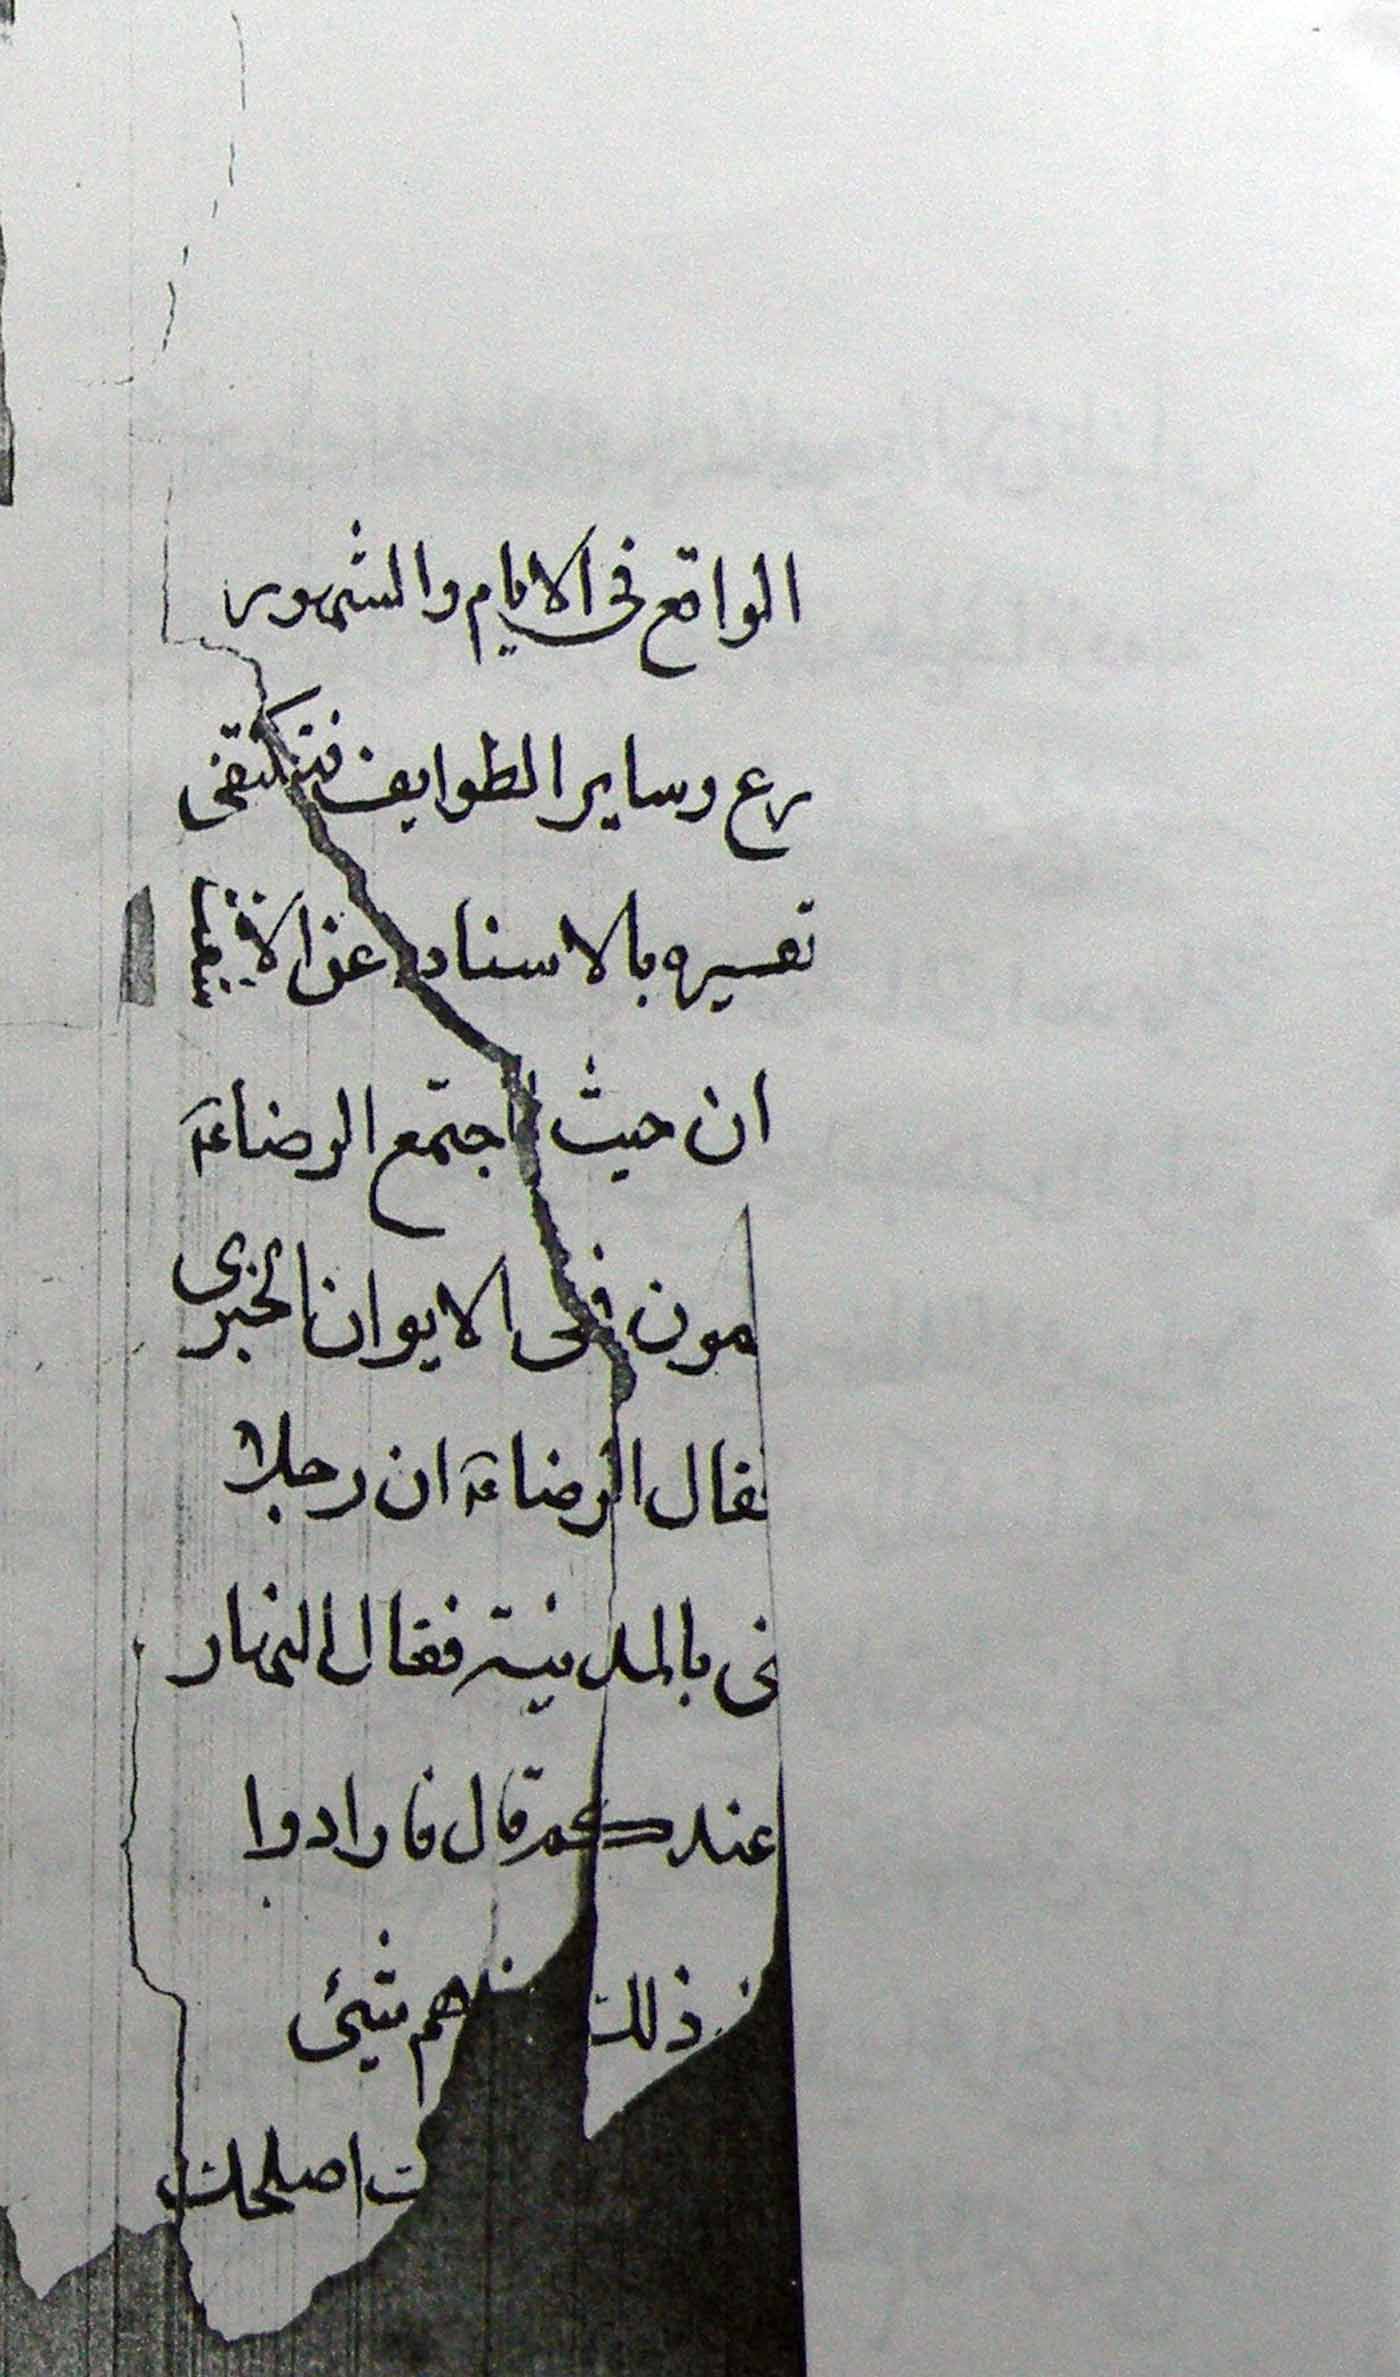 الواقع في الايام والشهور
رع وساير الطوايف فنكتفى
تفسيره بالاسناد عن الا
ان حيث اجتمع الرضا عۃ
مون فى الايوان الخبرى
فقال الرضا عۃ ان رجلا
نى بالمدينة فقال النهار
عندكم قال فارادوا
ذلك هم شيئ
ت اصلحك